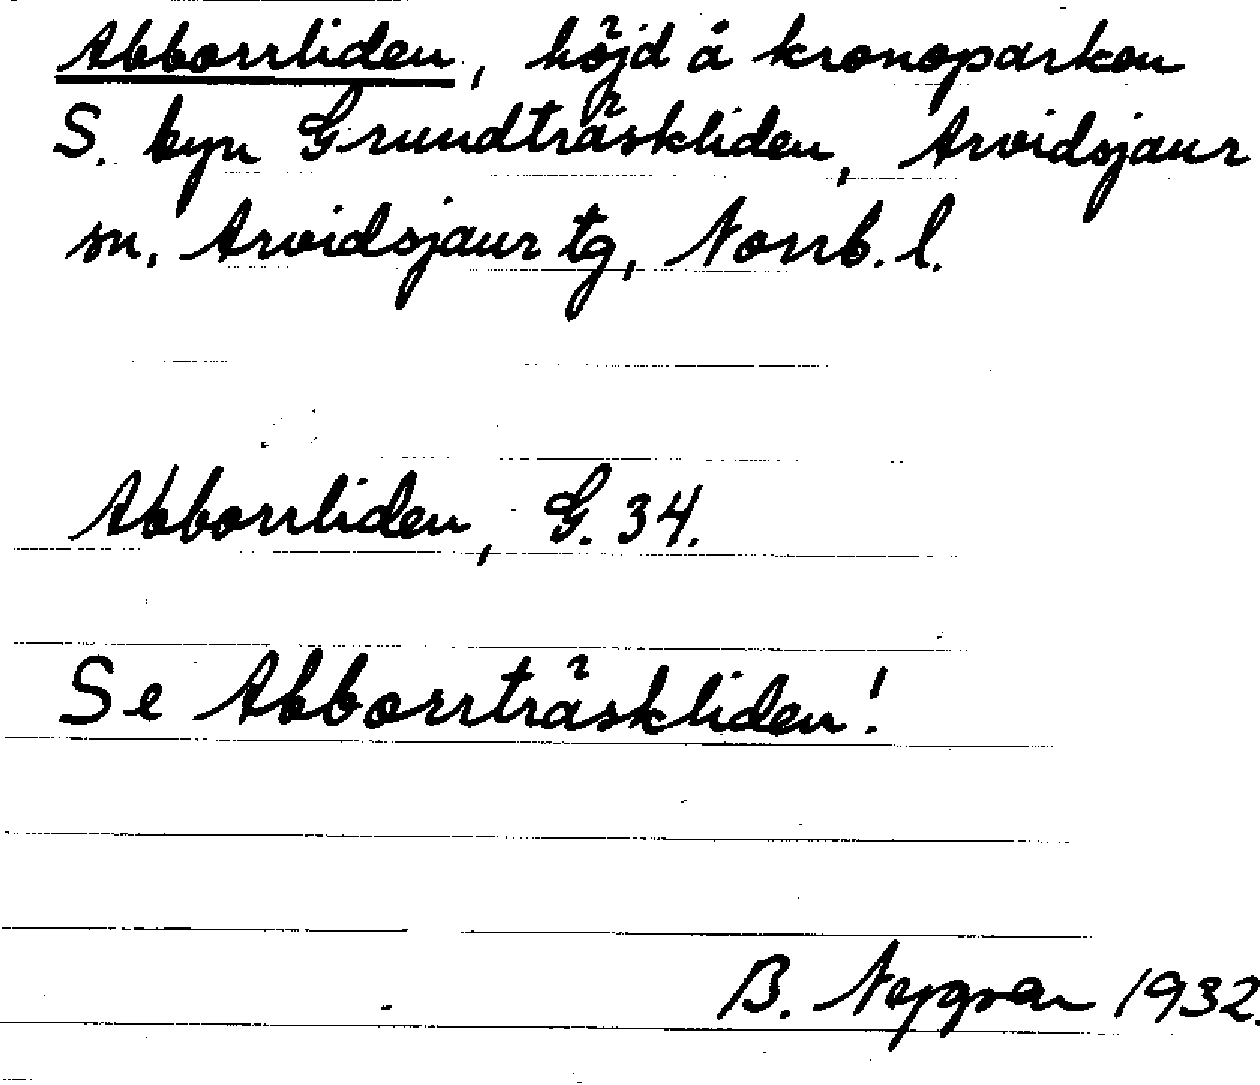 Abborrliden, höjd å kronoparken
S. byn Grundträskliden, Arvidsjaur
sn. Arvidsjaur tg, Norrb. l.
Abborrliden, G. 34.
Se Abborrträskliden!
B. Nygren 1932.